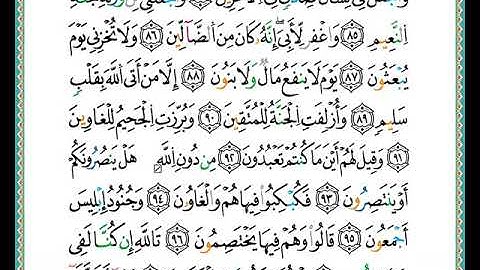 ٱلنَّعِيمِ ٨٥ وَٱغۡفِرۡ لِأَبِيٓ إِنَّهُۥ كَانَ مِنَ ٱلضَّآلِّينَ ٨٦ وَلَا تُخۡزِنِي يَوۡمَ
يُبۡعَثُونَ ٨٧ يَوۡمَ لَا يَنفَعُ مَالٞ وَلَا بَنُونَ ٨٨ إِلَّا مَنۡ أَتَى ٱللَّهَ بِقَلۡبٖ
سَلِيمٖ ٨٩ وَأُزۡلِفَتِ ٱلۡجَنَّةُ لِلۡمُتَّقِينَ ٩٠ وَبُرِّزَتِ ٱلۡجَحِيمُ لِلۡغَاوِينَ
٩١ وَقِيلَ لَهُمۡ أَيۡنَ مَا كُنتُمۡ تَعۡبُدُونَ ٩٢ مِن دُونِ ٱللَّهِ هَلۡ يَنصُرُونَكُمۡ
أَوۡ يَنتَصِرُونَ ٩٣ فَكُبۡكِبُواْ فِيهَا هُمۡ وَٱلۡغَاوُۥنَ ٩٤ وَجُنُودُ إِبۡلِيسَ
أَجۡمَعُونَ ٩٥ قَالُواْ وَهُمۡ فِيهَا يَخۡتَصِمُونَ ٩٦ تَٱللَّهِ إِن كُنَّا لَفِي